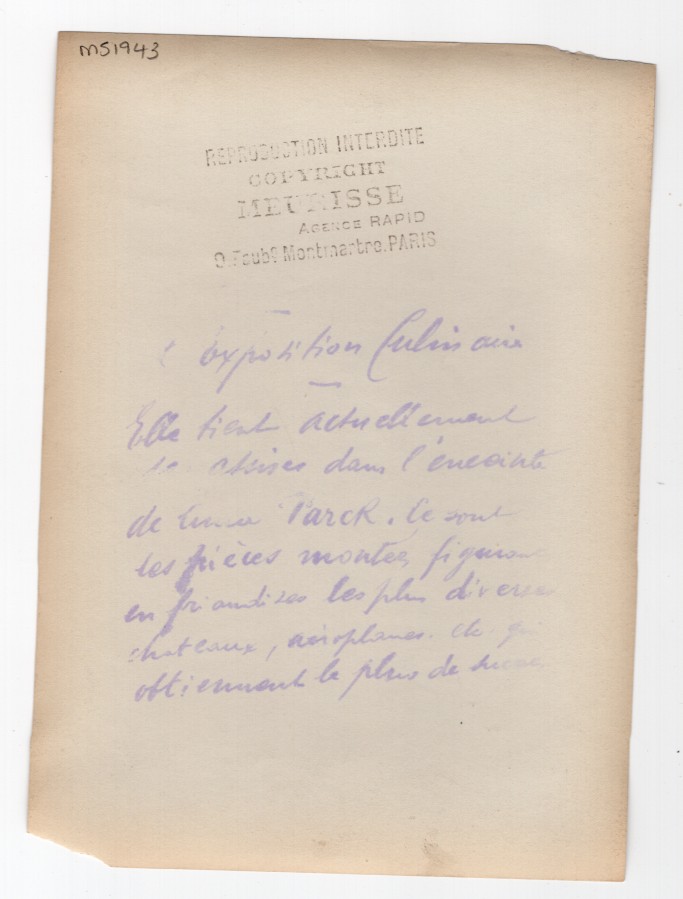 MS1943
REPRODUCTION INTERDITE
COPYRIGHT
MEURISSE
AGENCE RAPID
9, Faubg Montmartre, PARIS
L'exposition Culinaire
Elle tient actuellement
assises dans l'enceinte
de Luna Parck. Ce sont
les pièces montées, figurant
en friandises les plus diverses
chateaux, aéroplanes. etc. qui
obtiennent le plus de succès